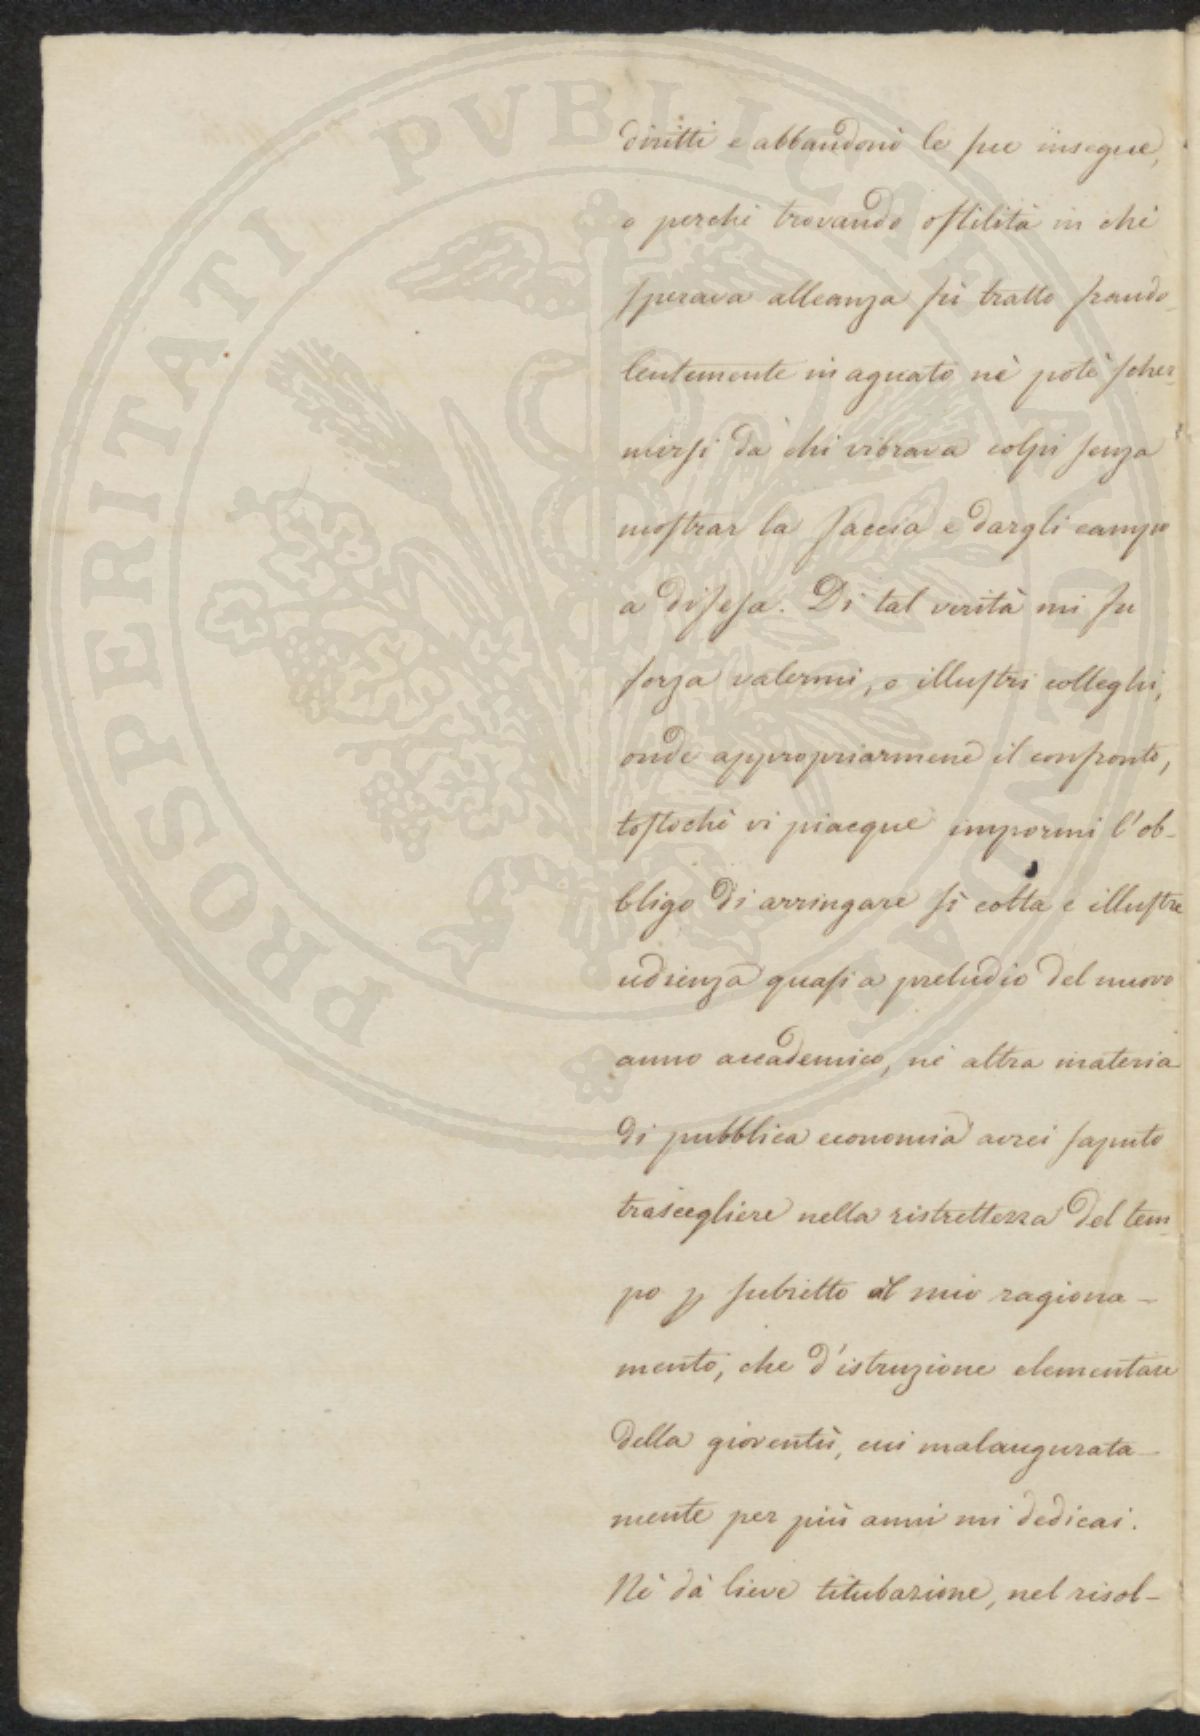 PROSPERITATI PVBLICAE AVGENDAE
diritti e abbandonò le sue insegne,
o perchè trovando ostilità in chi
sperava alleanza fù tratto fraudo-
lentemente in aguato nè potè scher-
mirsi da chi vibrava colpi senza
mostrar la faccia e dargli campo
a difesa. Di tal verità mi fu
forza valermi, o illustri colleghi,
onde appropriarmene il confronto,
tostochè vi piacque impormi l'ob-
bligo di arringare sì colta e illustre
udienza quasi a preludio del nuovo
anno accademico, nè altra materia
di pubblica economia avrei saputo
trascegliere nella ristrettezza del tem-
po p subietto al mio ragiona-
mento, che d'istruzione elementare
della gioventù, cui malaugurata-
mente per più anni mi dedicai.
Nè dà lieve titubazione, nel risol-